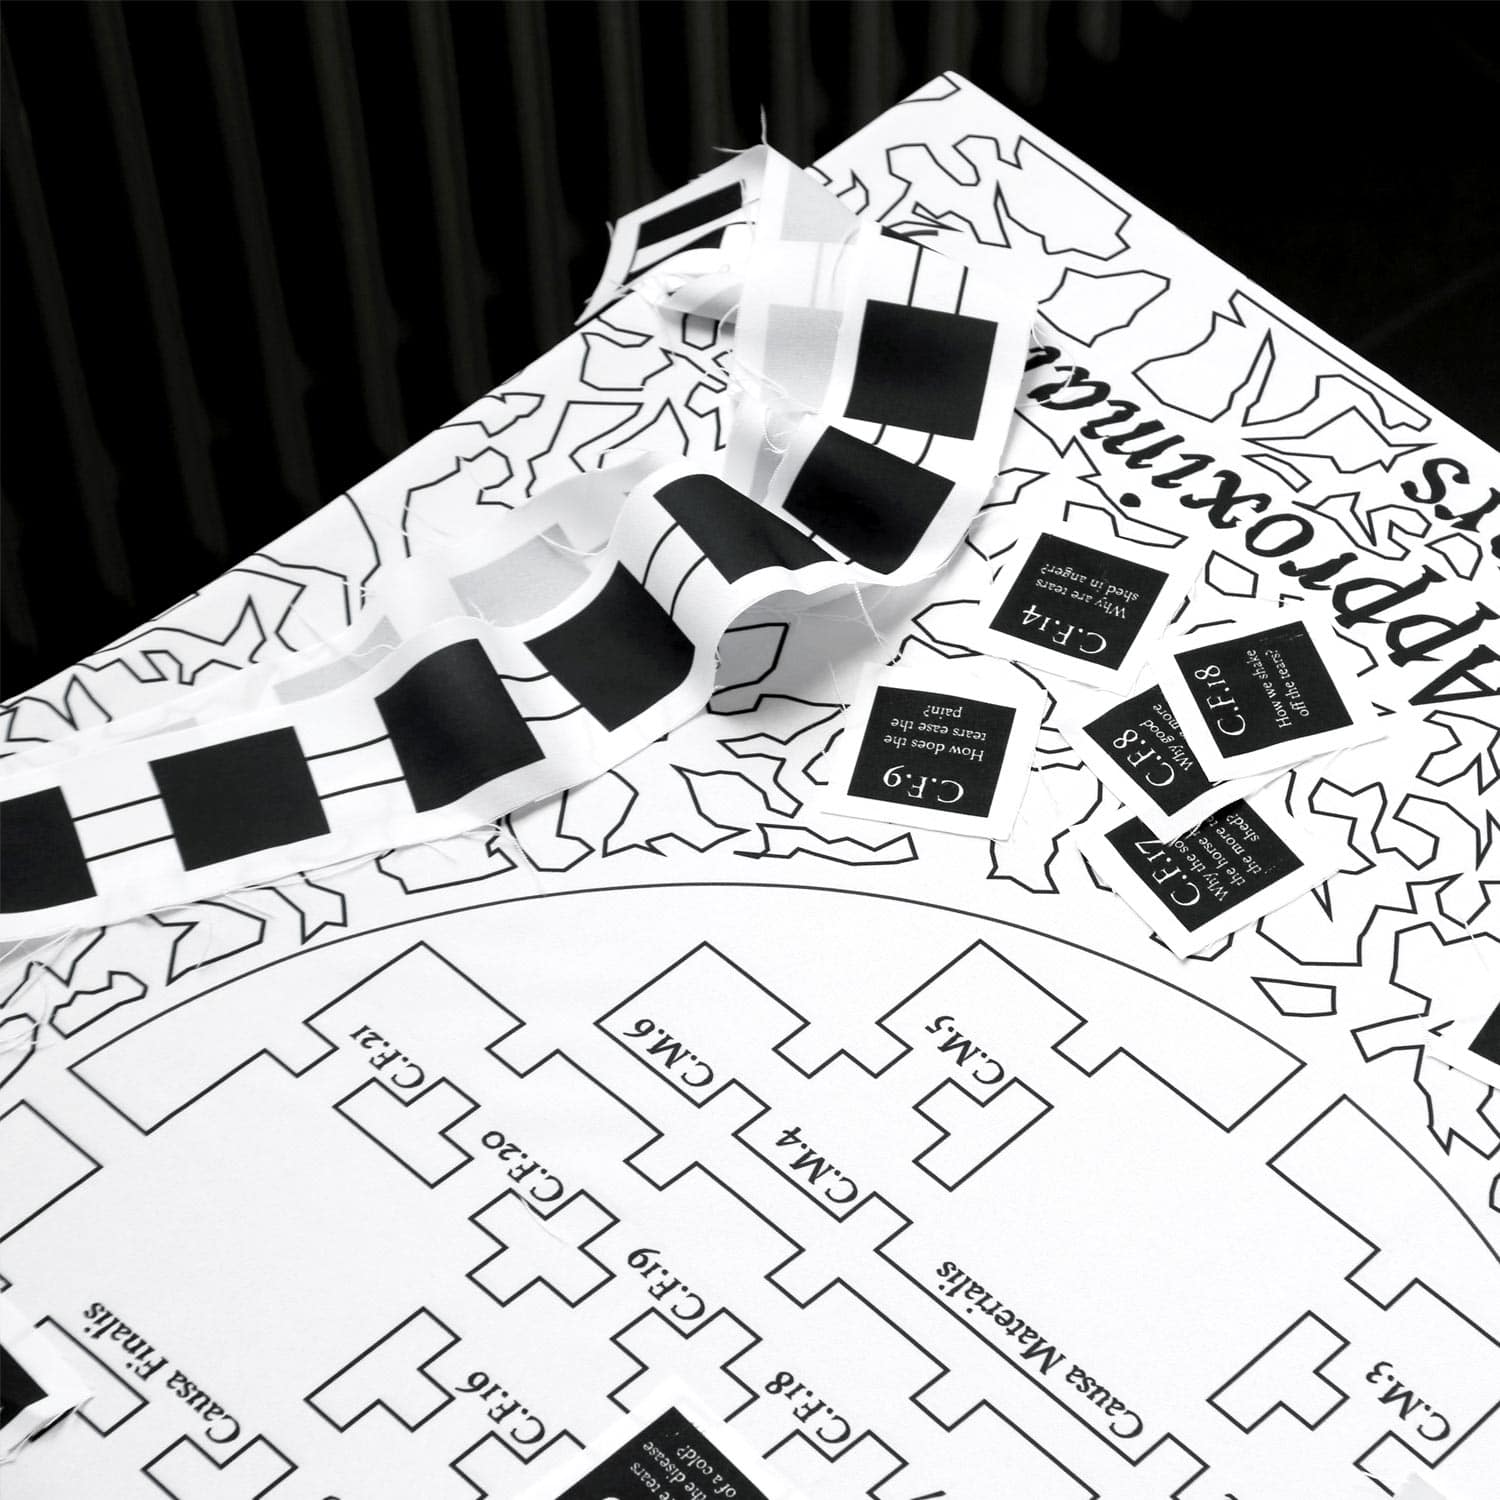 Approximar
C.F.14
Why are tears
shed in anger?
C.F.18
How we shake
off the tears?
C.F.8
Why good
more
C.F.9
How does the
tears ease the
pain?
C.F.17
Why the
the horse
the more
shed?
C.F.21
C.M.6
C.M.5
C.F.20
C.M.4
C.F.19
Causa Finalis
Causa Materialis
C.F.16
C.F.18
C.M.3
tears
the disease
of a cold?